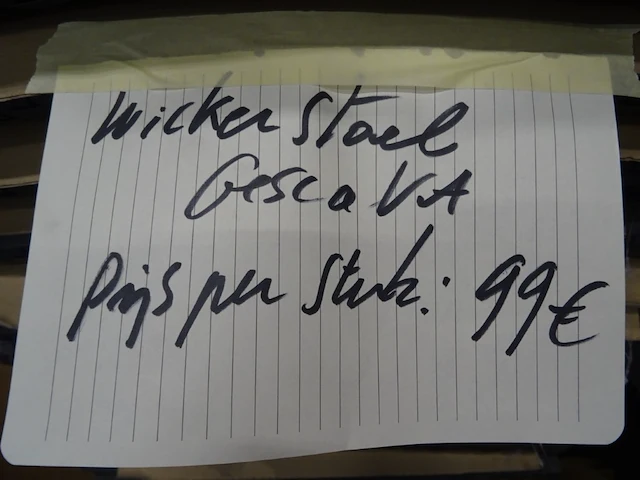 Wicker Stoel
Gesca VA
Prijs per stuk: 99€